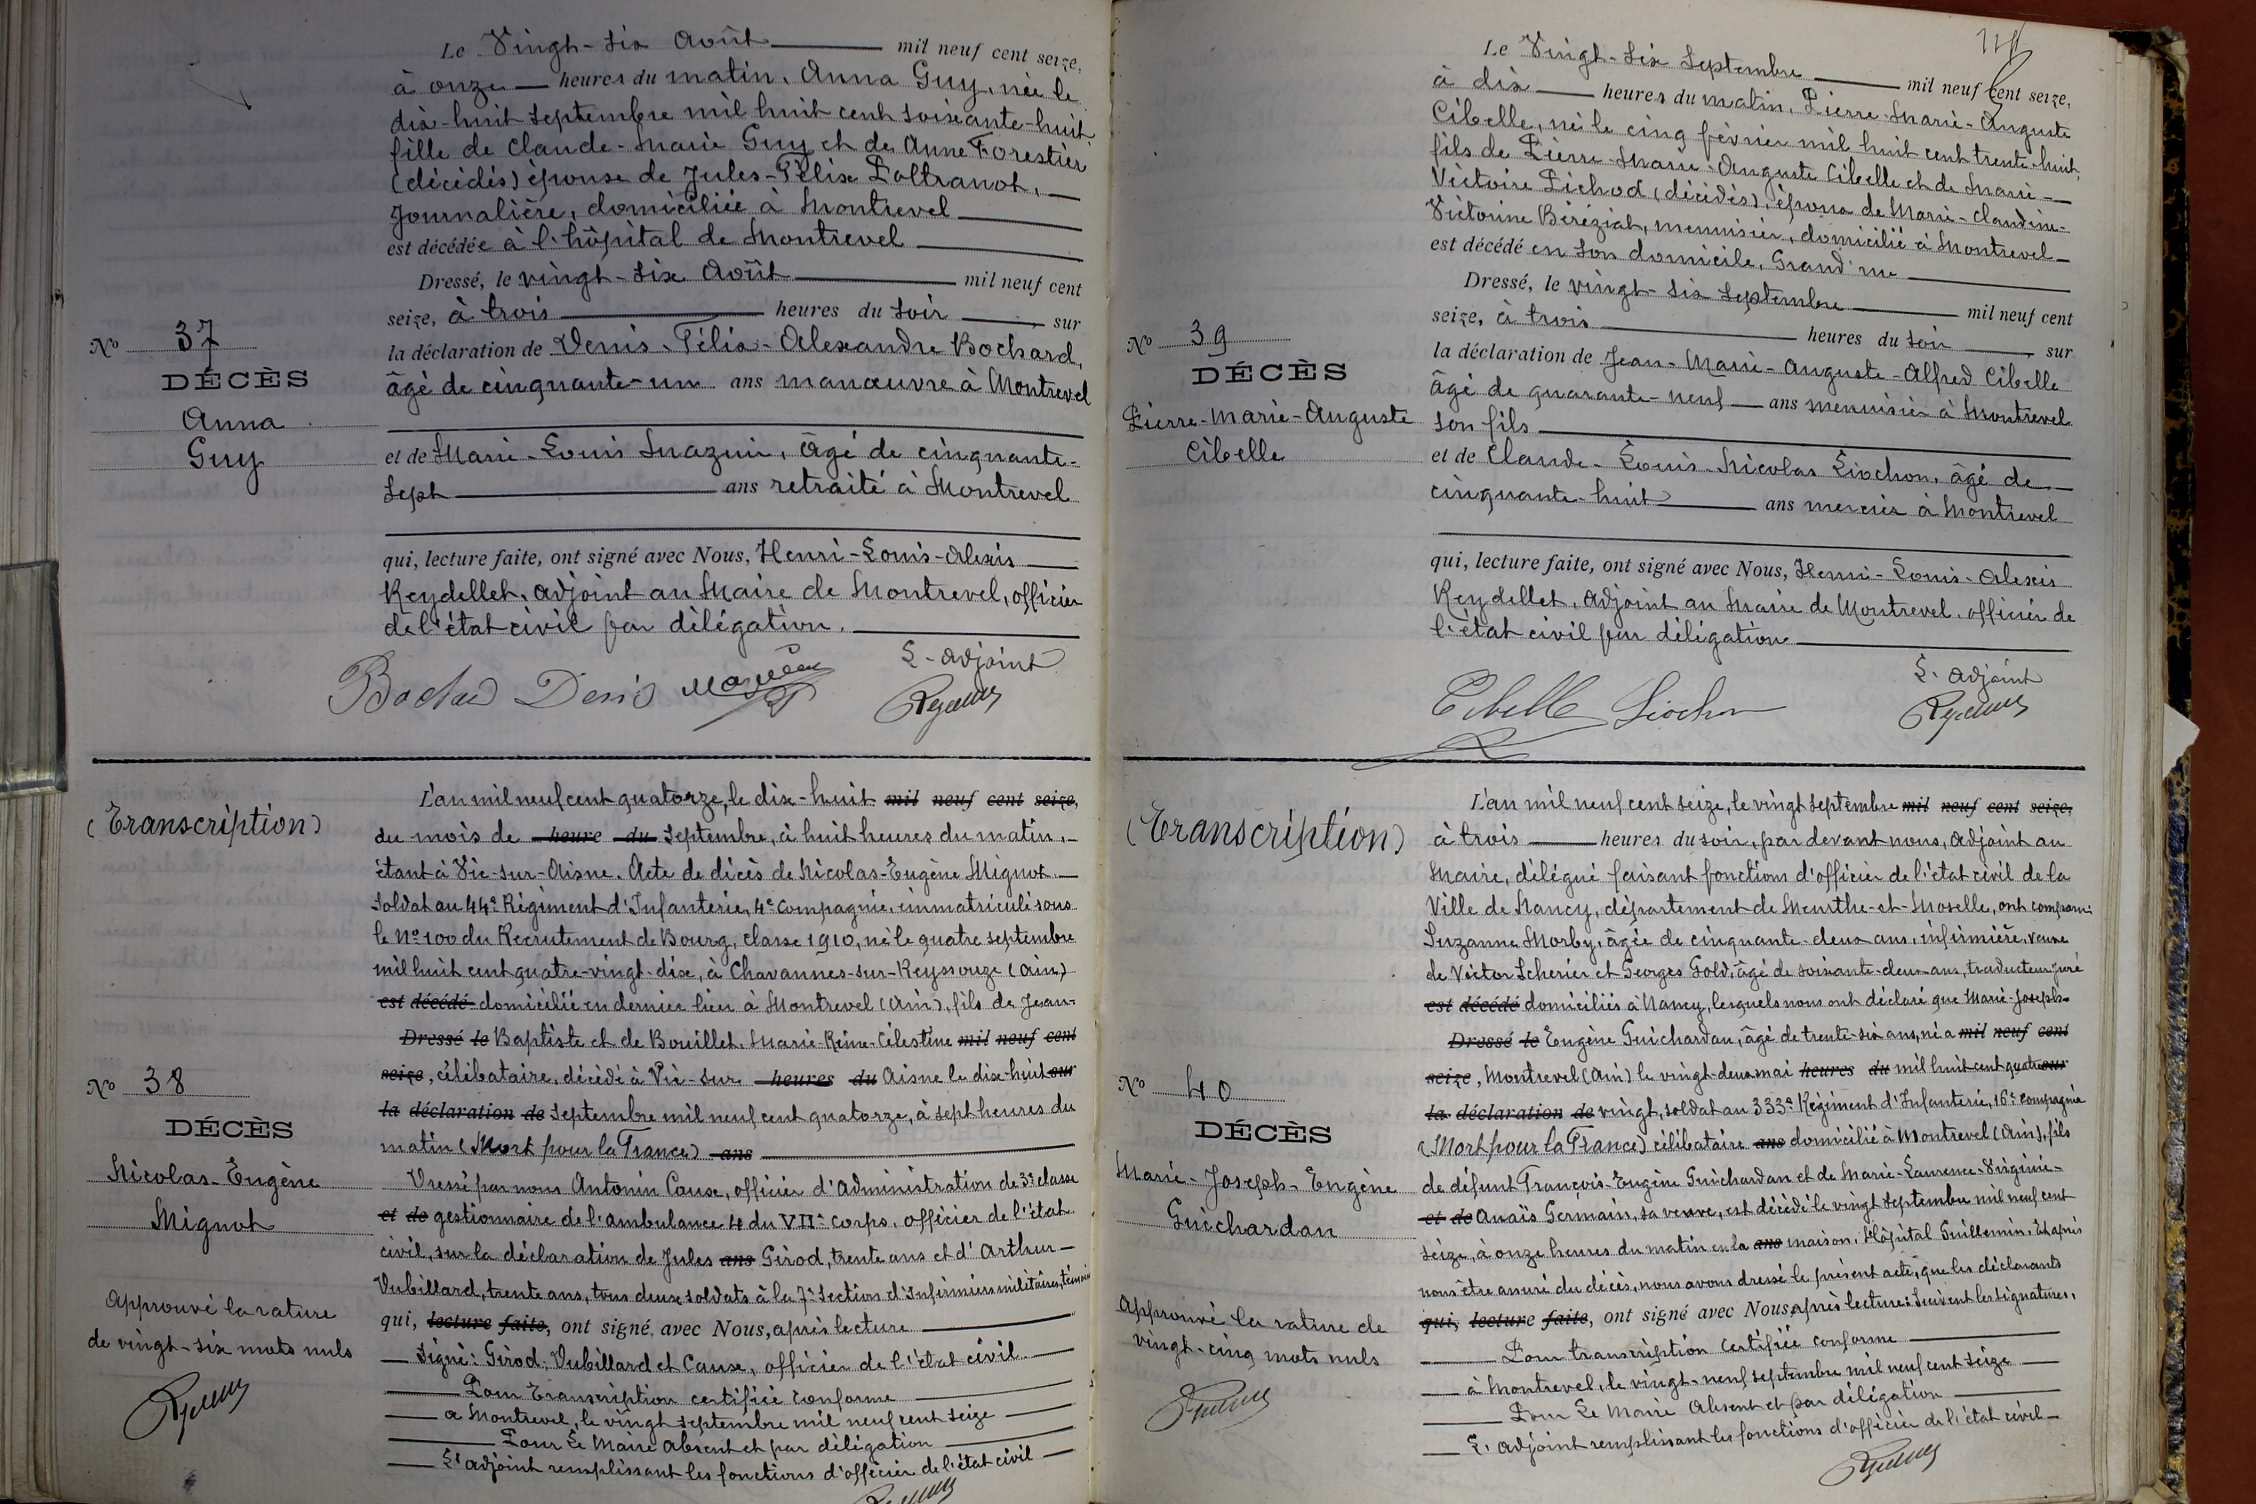 Le Vingt-six Août mil neuf cent seize,
à onze heures du matin, Anna Guy, née le
dix-huit septembre mil huit cent soixante-huit
fille de Claude-Marie Guy et de Anne Forestier
(décédés) épouse de Jules-Félix Poltranot,
Journalière, domiciliée à Montrevel
est décédée à l'hôpital de Montrevel
Dressé, le vingt-six Août mil neuf cent
seize, à trois heures du soir sur
la déclaration de Denis-Félix-Alexandre Bochard,
N° 37
DÉCÈS
Anna
Guy
âgé de cinquante-un ans manœuvre à Montrevel
et de Marie-Louis Mazuir, âgé de cinquante-
sept ans retraité à Montrevel
qui, lecture faite, ont signé avec Nous, Henri-Louis-Alexis
Reydellet, adjoint au Maire de Montrevel, officier
de l'état civil par délégation.
L'adjoint
Bochard Denis
(Transcription)
L'an mil neuf cent quatorze, le dix-huit mil neuf cent seize,
du mois de heure du septembre, à huit heures du matin,
étant à Vic-sur-Aisne. Acte de décès de Nicolas-Eugène Mignot
soldat au 44e Régiment d'Infanterie, 4e Compagnie, immatriculé sous
le N° 100 du Recrutement de Bourg, classe 1910, né le quatre septembre
mil huit cent quatre-vingt-dix, à Chavannes-sur-Reyssouze (Ain)
est décédé domicilié en dernier lieu à Montrevel (Ain), fils de Jean-
Dressé le Baptiste et de Bouillet Marie-Reine-Célestine mil neuf cent
seize, célibataire, décédé à Vic-sur heures du Aisne le dix-huit sur
la déclaration de septembre mil neuf cent quatorze, à sept heures du
matin (Mort pour la France) ans
N° 38
DÉCÈS
Nicolas-Eugène
Mignot
Dressé par nous Antonin Cause, officier d'administration de 3e classe
et de gestionnaire de l'ambulance 4 du VIIe corps, officier de l'état
civil, sur la déclaration de Jules ans Girod, trente ans et d'Arthur
Vubillard, trente ans, tous deux soldats à la 7e Section d'Infirmiers militaires, témoins
qui, lecture faite, ont signé avec Nous, après lecture
Signé: Girod, Vubillard et Cause, officier de l'état civil
Pour Transcription certifiée conforme
à Montrevel, le vingt septembre mil neuf cent seize
Pour Le Maire absent et par délégation
L'adjoint remplissant les fonctions d'officier de l'état civil
Approuvé la rature
de vingt-six mots nuls
Le Vingt-six Septembre mil neuf cent seize,
à dix heures du matin, Pierre-Marie-Auguste
Cibelle, né le cinq février mil huit cent trente-huit,
fils de Pierre-Marie-Auguste Cibelle et de Marie-
Victoire Pichod (décédés), époux de Marie-Claudine-
Victorine Béréziat, menuisier, domicilié à Montrevel
est décédé en son domicile, Grand'rue
Dressé, le vingt-six septembre mil neuf cent
seize, à trois heures du soir sur
la déclaration de Jean-Marie-Auguste-Alfred Cibelle
N° 39
DÉCÈS
Pierre-Marie-Auguste
Cibelle
âgé de quarante-neuf ans menuisier à Montrevel
son fils
et de Claude-Louis-Nicolas Liochon, âgé de
cinquante-huit ans mercier à Montrevel
qui, lecture faite, ont signé avec Nous, Henri-Louis-Alexis
Reydellet, Adjoint au Maire de Montrevel, officier de
l'état civil par délégation
L'adjoint
Cibelle Liochon
(Transcription)
L'an mil neuf cent seize, le vingt septembre mil neuf cent seize,
à trois heures du soir, par devant nous, Adjoint au
Maire, délégué faisant fonctions d'officier de l'état civil de la
Ville de Nancy, département de Meurthe-et-Moselle, ont comparu
Suzanne Morby, âgée de cinquante-deux ans, infirmière, veuve
de Victor Scherier et Georges Gold, âgé de soixante-deux ans, traducteur juré
est décédé domiciliés à Nancy, lesquels nous ont déclaré que Marie-Joseph-
Dressé le Eugène Guichardan, âgé de trente-six ans, né à mil neuf cent
seize, Montrevel (Ain) le vingt-deux mai heures du mil huit cent quatre sur
la déclaration de vingt, soldat au 333e Régiment d'Infanterie, 16e Compagnie
(Mort pour la France) célibataire ans domicilié à Montrevel (Ain), fils
N° 40
DÉCÈS
Marie-Joseph-Eugène
Guichardan
de défunt François-Eugène Guichardan et de Marie-Laurence-Virginie-
et de Anaïs Germain, sa veuve, est décédé le vingt septembre mil neuf cent
seize, à onze heures du matin en la ans maison, Hôpital Guillemin. Et après
nous être assuré du décès, nous avons dressé le présent acte, que les déclarants
qui, lecture faite, ont signé avec Nous, après lecture: Suivent les signatures.
Pour transcription certifiée conforme
à Montrevel, le vingt-neuf septembre mil neuf cent seize
Pour Le Maire Absent et par délégation
L'adjoint remplissant les fonctions d'officier de l'état civil
Approuvé la rature de
vingt-cinq mots nuls